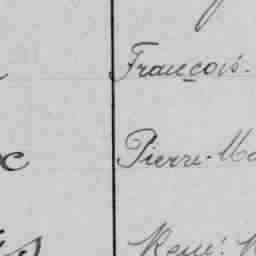 François.
Pierre. Ma
René.